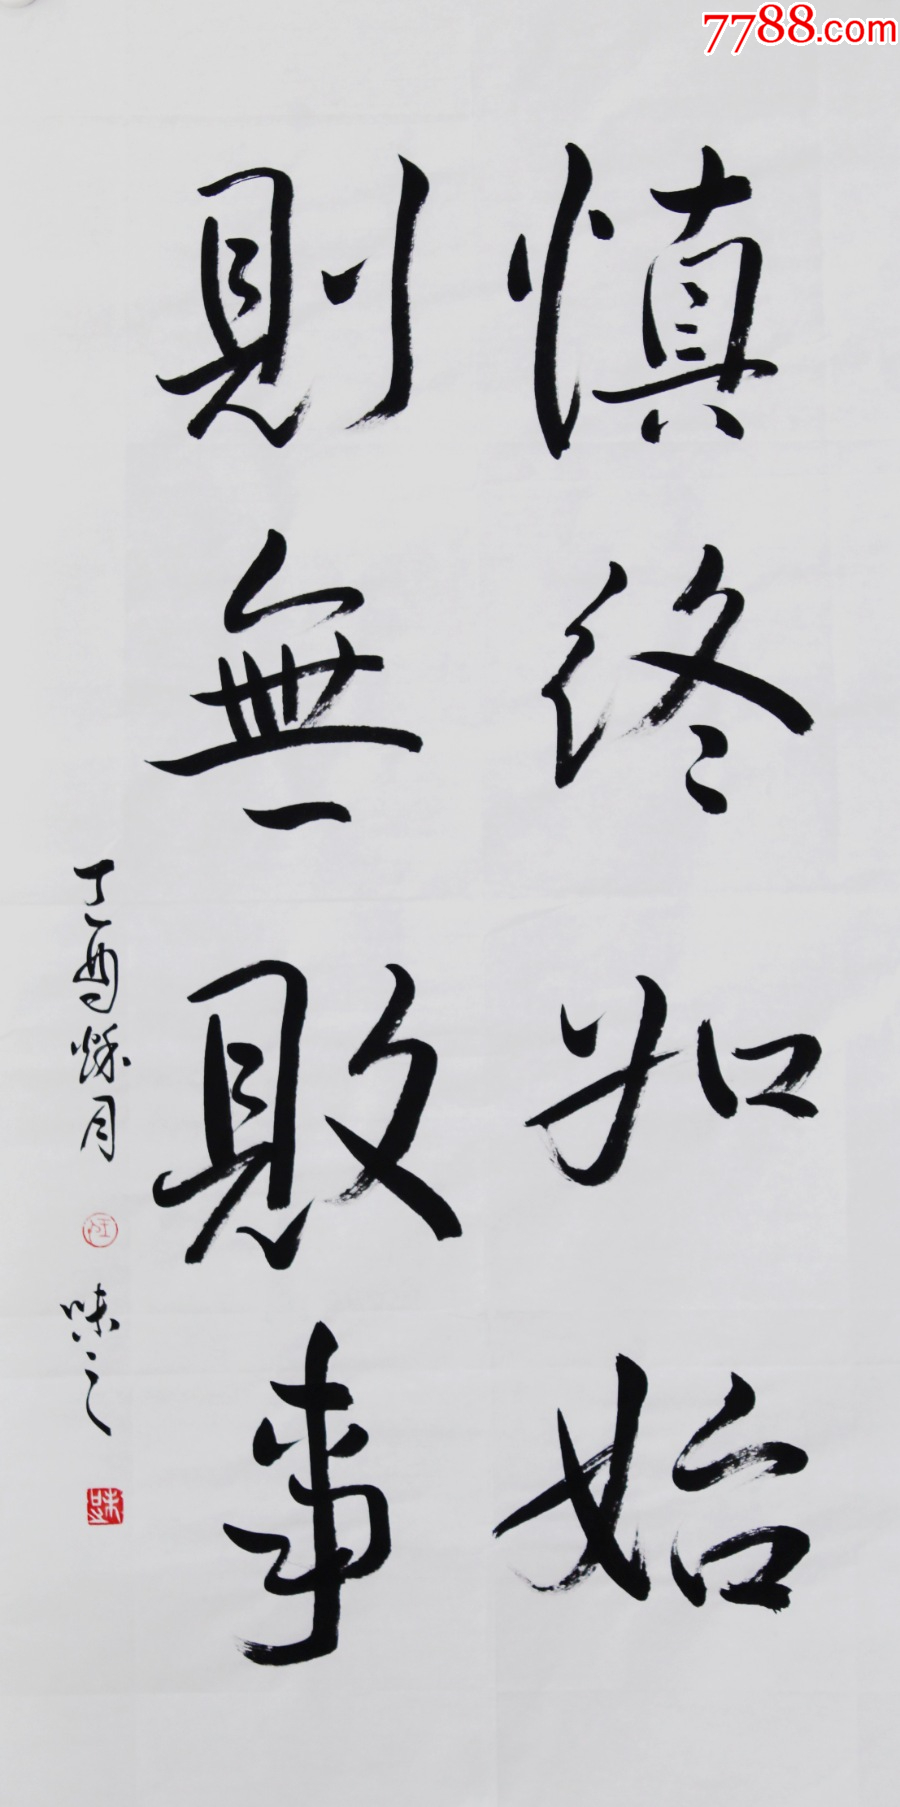 7788.com
慎終如始
則無敗事
丁酉秌月
味之